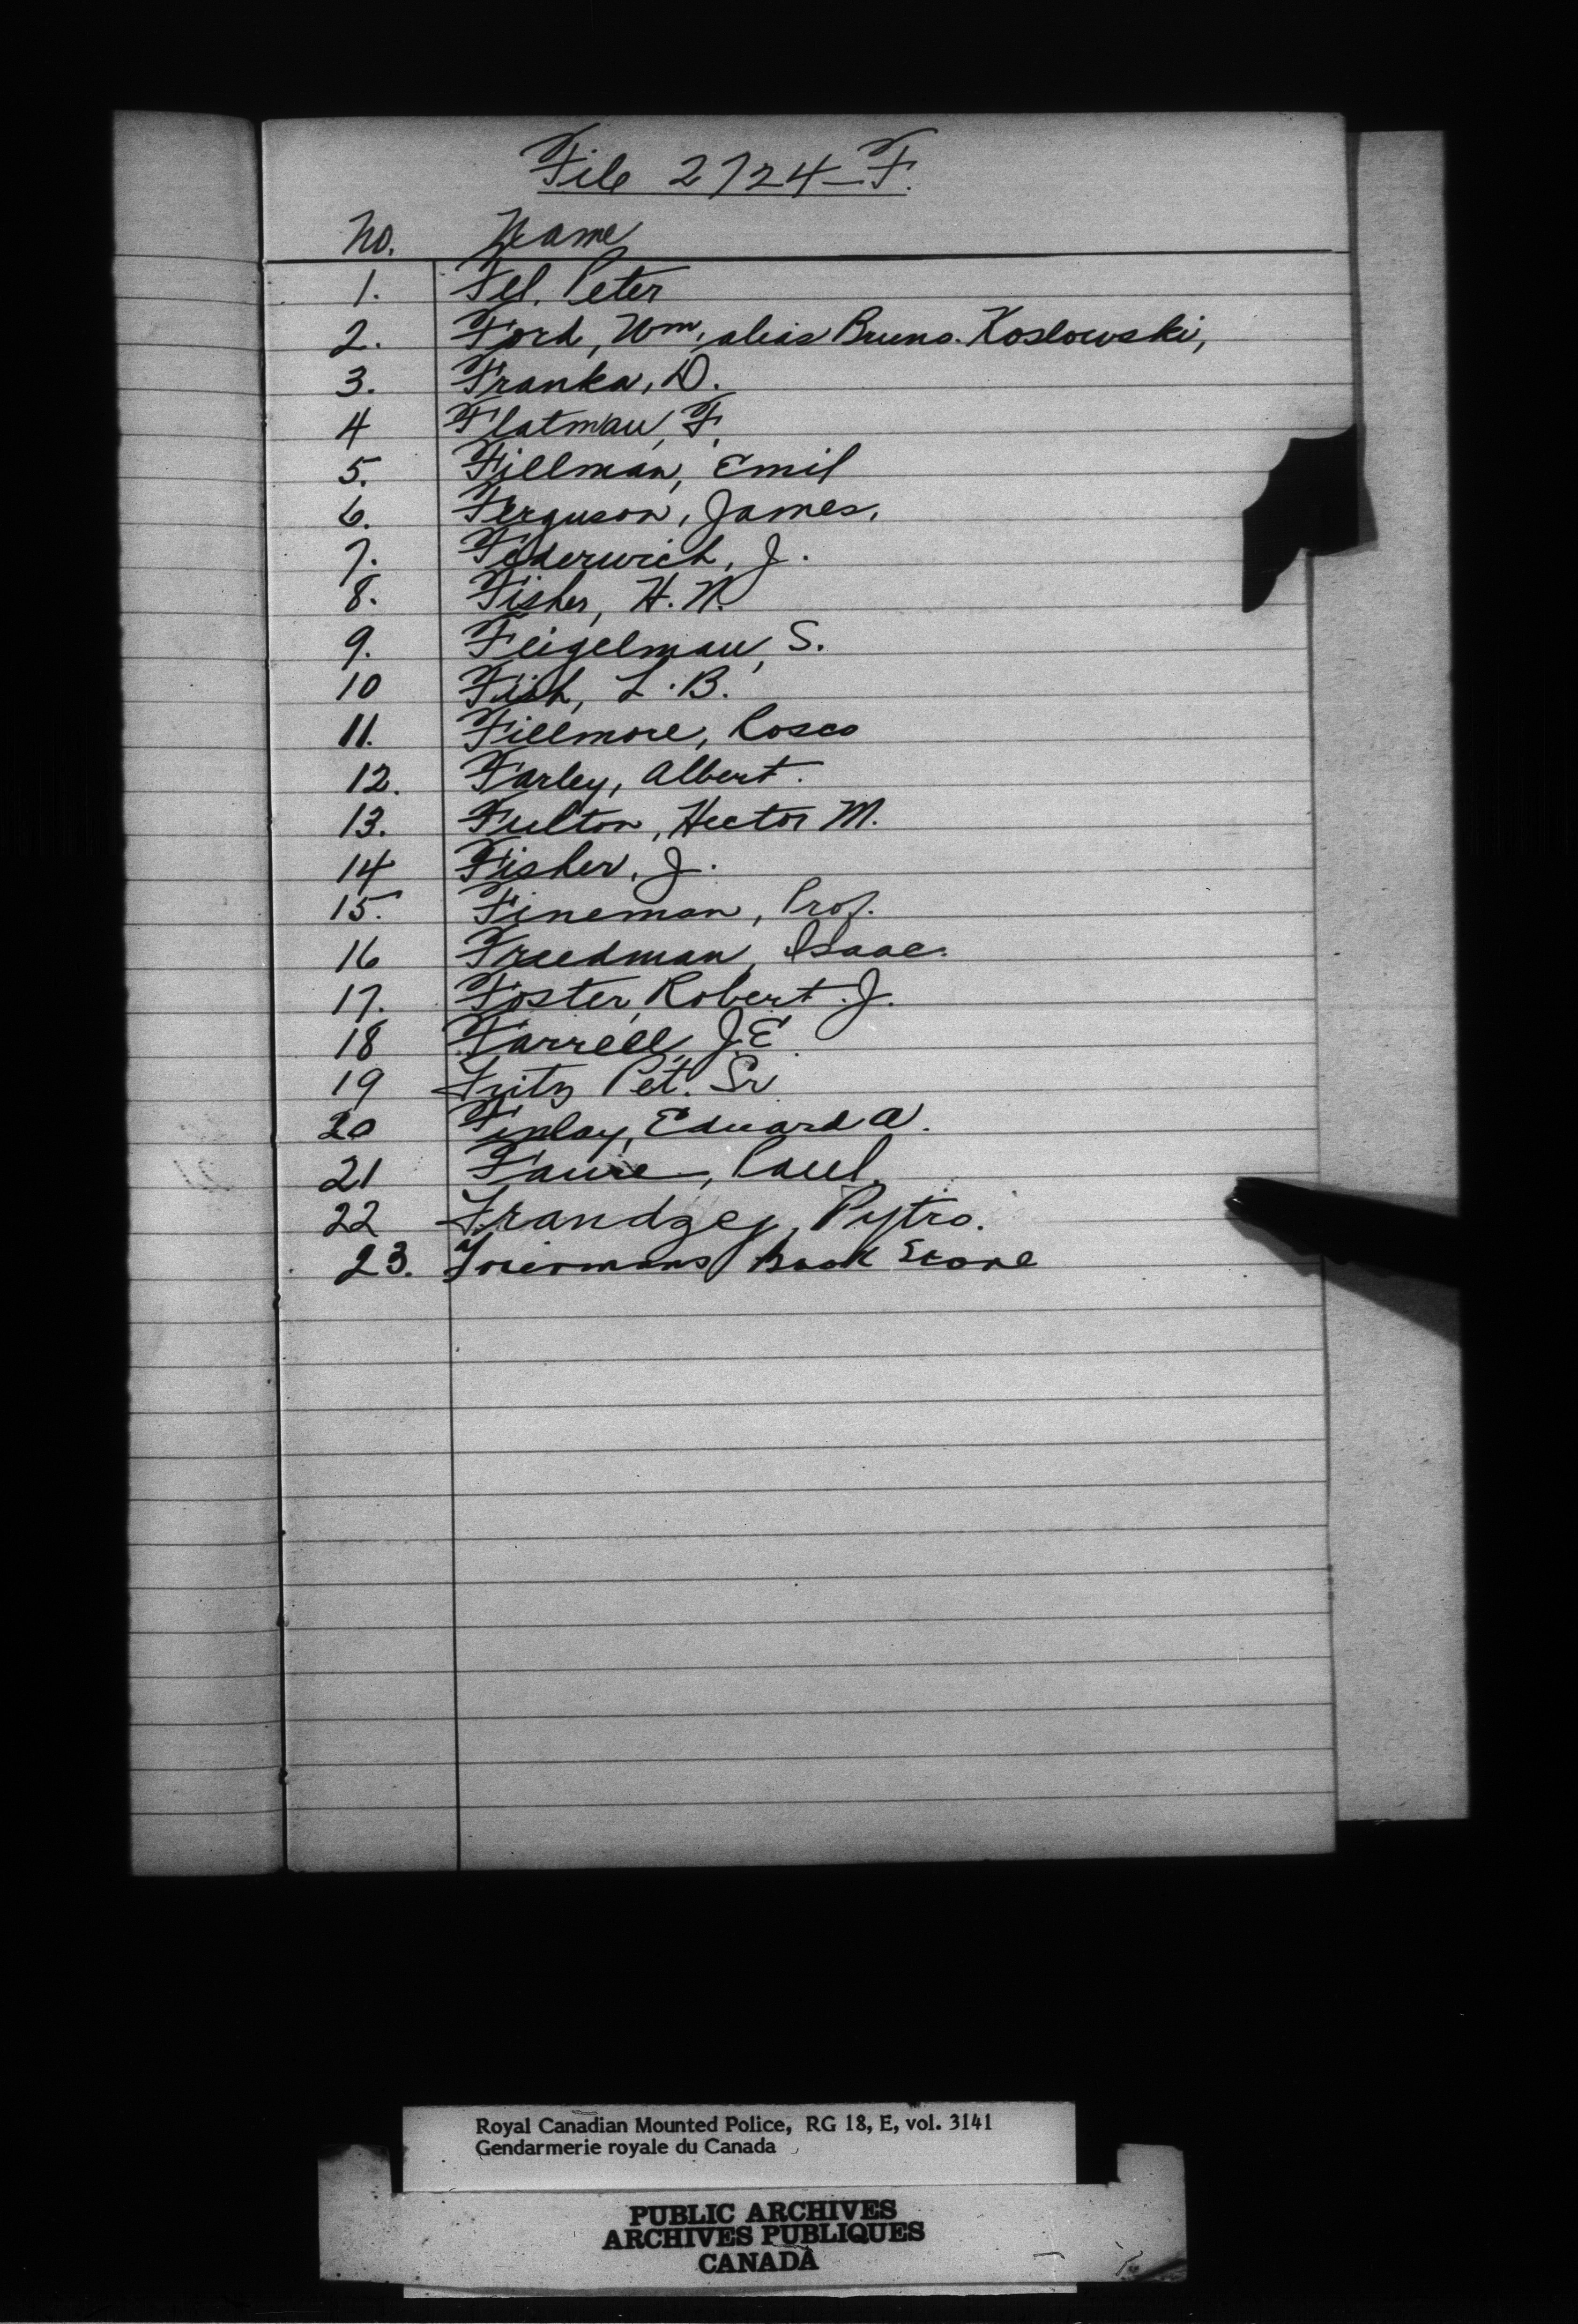 File 2724-F.
No. Name
1. Fel. Peter
2. Ford, Wm, alias Bruno. Koslowski,
3. Franka, D.
4 Flatman, F.
5. Fillman, Emil
6. Ferguson, James,
7. Federwich, J.
8. Fisher, H. N.
9. Feigelman, S.
10 Fish, L. B.
11. Fillmore, Rosco
12. Farley, Albert.
13. Fulton, Hector M.
14 Fisher, J.
15. Fineman, Prof.
16 Freedman, Isaac.
17. Foster, Robert. J.
18 Farrell, J.E.
19 Fritz Pet. Sr
20 Finlay, Edward A.
21 Faure, Paul.
22 Frandzej, Pytro.
23. Book Store
Royal Canadian Mounted Police, RG 18, E, vol. 3141
Gendarmerie royale du Canada
PUBLIC ARCHIVES
ARCHIVES PUBLIQUES
CANADA